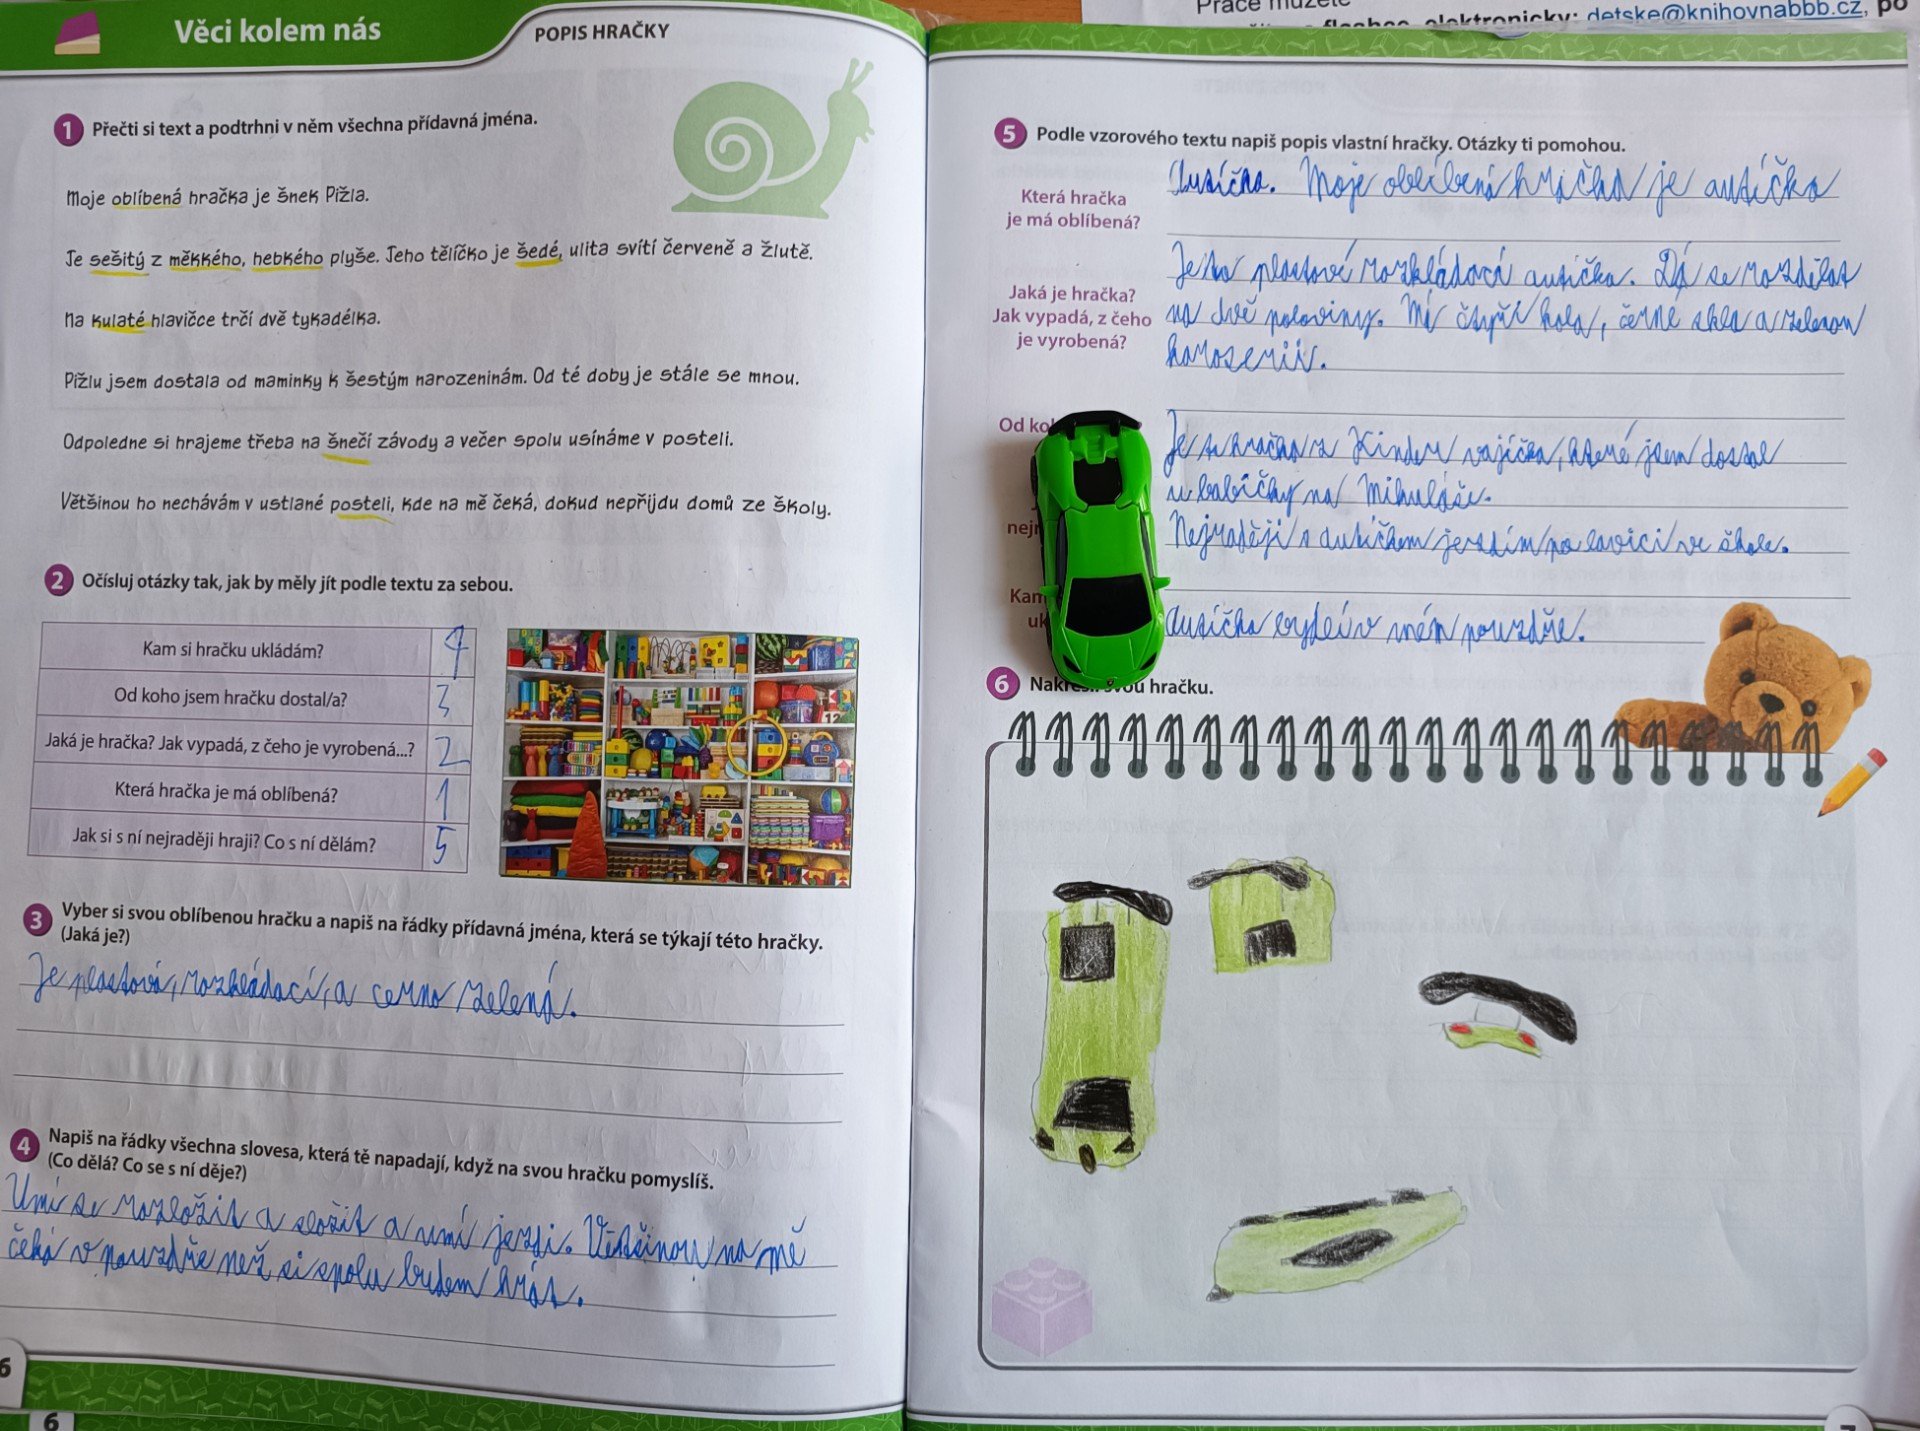 Práce můžete
flashce, elektronicky: detske@knihovnabbb.cz, po
Věci kolem nás
POPIS HRAČKY
1 Přečti si text a podtrhni v něm všechna přídavná jména.
Moje oblíbená hračka je šnek Pížla.
Je sešitý z měkkého, hebkého plyše. Jeho tělíčko je šedé, ulita svítí červeně a žlutě.
Na kulaté hlavičce trčí dvě tykadélka.
Pížlu jsem dostala od maminky k šestým narozeninám. Od té doby je stále se mnou.
Odpoledne si hrajeme třeba na šnečí závody a večer spolu usínáme v posteli.
Většinou ho nechávám v ustlané posteli, kde na mě čeká, dokud nepřijdu domů ze školy.
2 Očísluj otázky tak, jak by měly jít podle textu za sebou.
Kam si hračku ukládám? 4
Od koho jsem hračku dostal/a? 3
Jaká je hračka? Jak vypadá, z čeho je vyrobená...? 2
Která hračka je má oblíbená? 1
Jak si s ní nejraději hraji? Co s ní dělám? 5
3 Vyber si svou oblíbenou hračku a napiš na řádky přídavná jména, která se týkají této hračky.
(Jaká je?)
Je plastová, rozkládací, a černo zelená.
4 Napiš na řádky všechna slovesa, která tě napadají, když na svou hračku pomyslíš.
(Co dělá? Co se s ní děje?)
Umí se rozložit a složit a umí jezdi. Většinou na mě
čeká v pouzdře než si spolu budem hrát.
6
6
5 Podle vzorového textu napiš popis vlastní hračky. Otázky ti pomohou.
Která hračka
je má oblíbená?
Autíčko. Moje oblíbená hračka je autíčko
Jaká je hračka?
Jak vypadá, z čeho
je vyrobená?
Je to plastové rozkládací autíčko. Dá se rozdělat
na dvě poloviny. Má čtyři kola, černé skla a zelenou
karoserii.
Od ko
Je to hračka z Kinder vajíčka, které jsem dostal
u babičky na Mikuláše.
nejr
Nejraději s autíčkem jezdím po lavici ve škole.
Kam
uk
Autíčko bydlí v mém pouzdře.
6 Nakresli svou hračku.
12
7